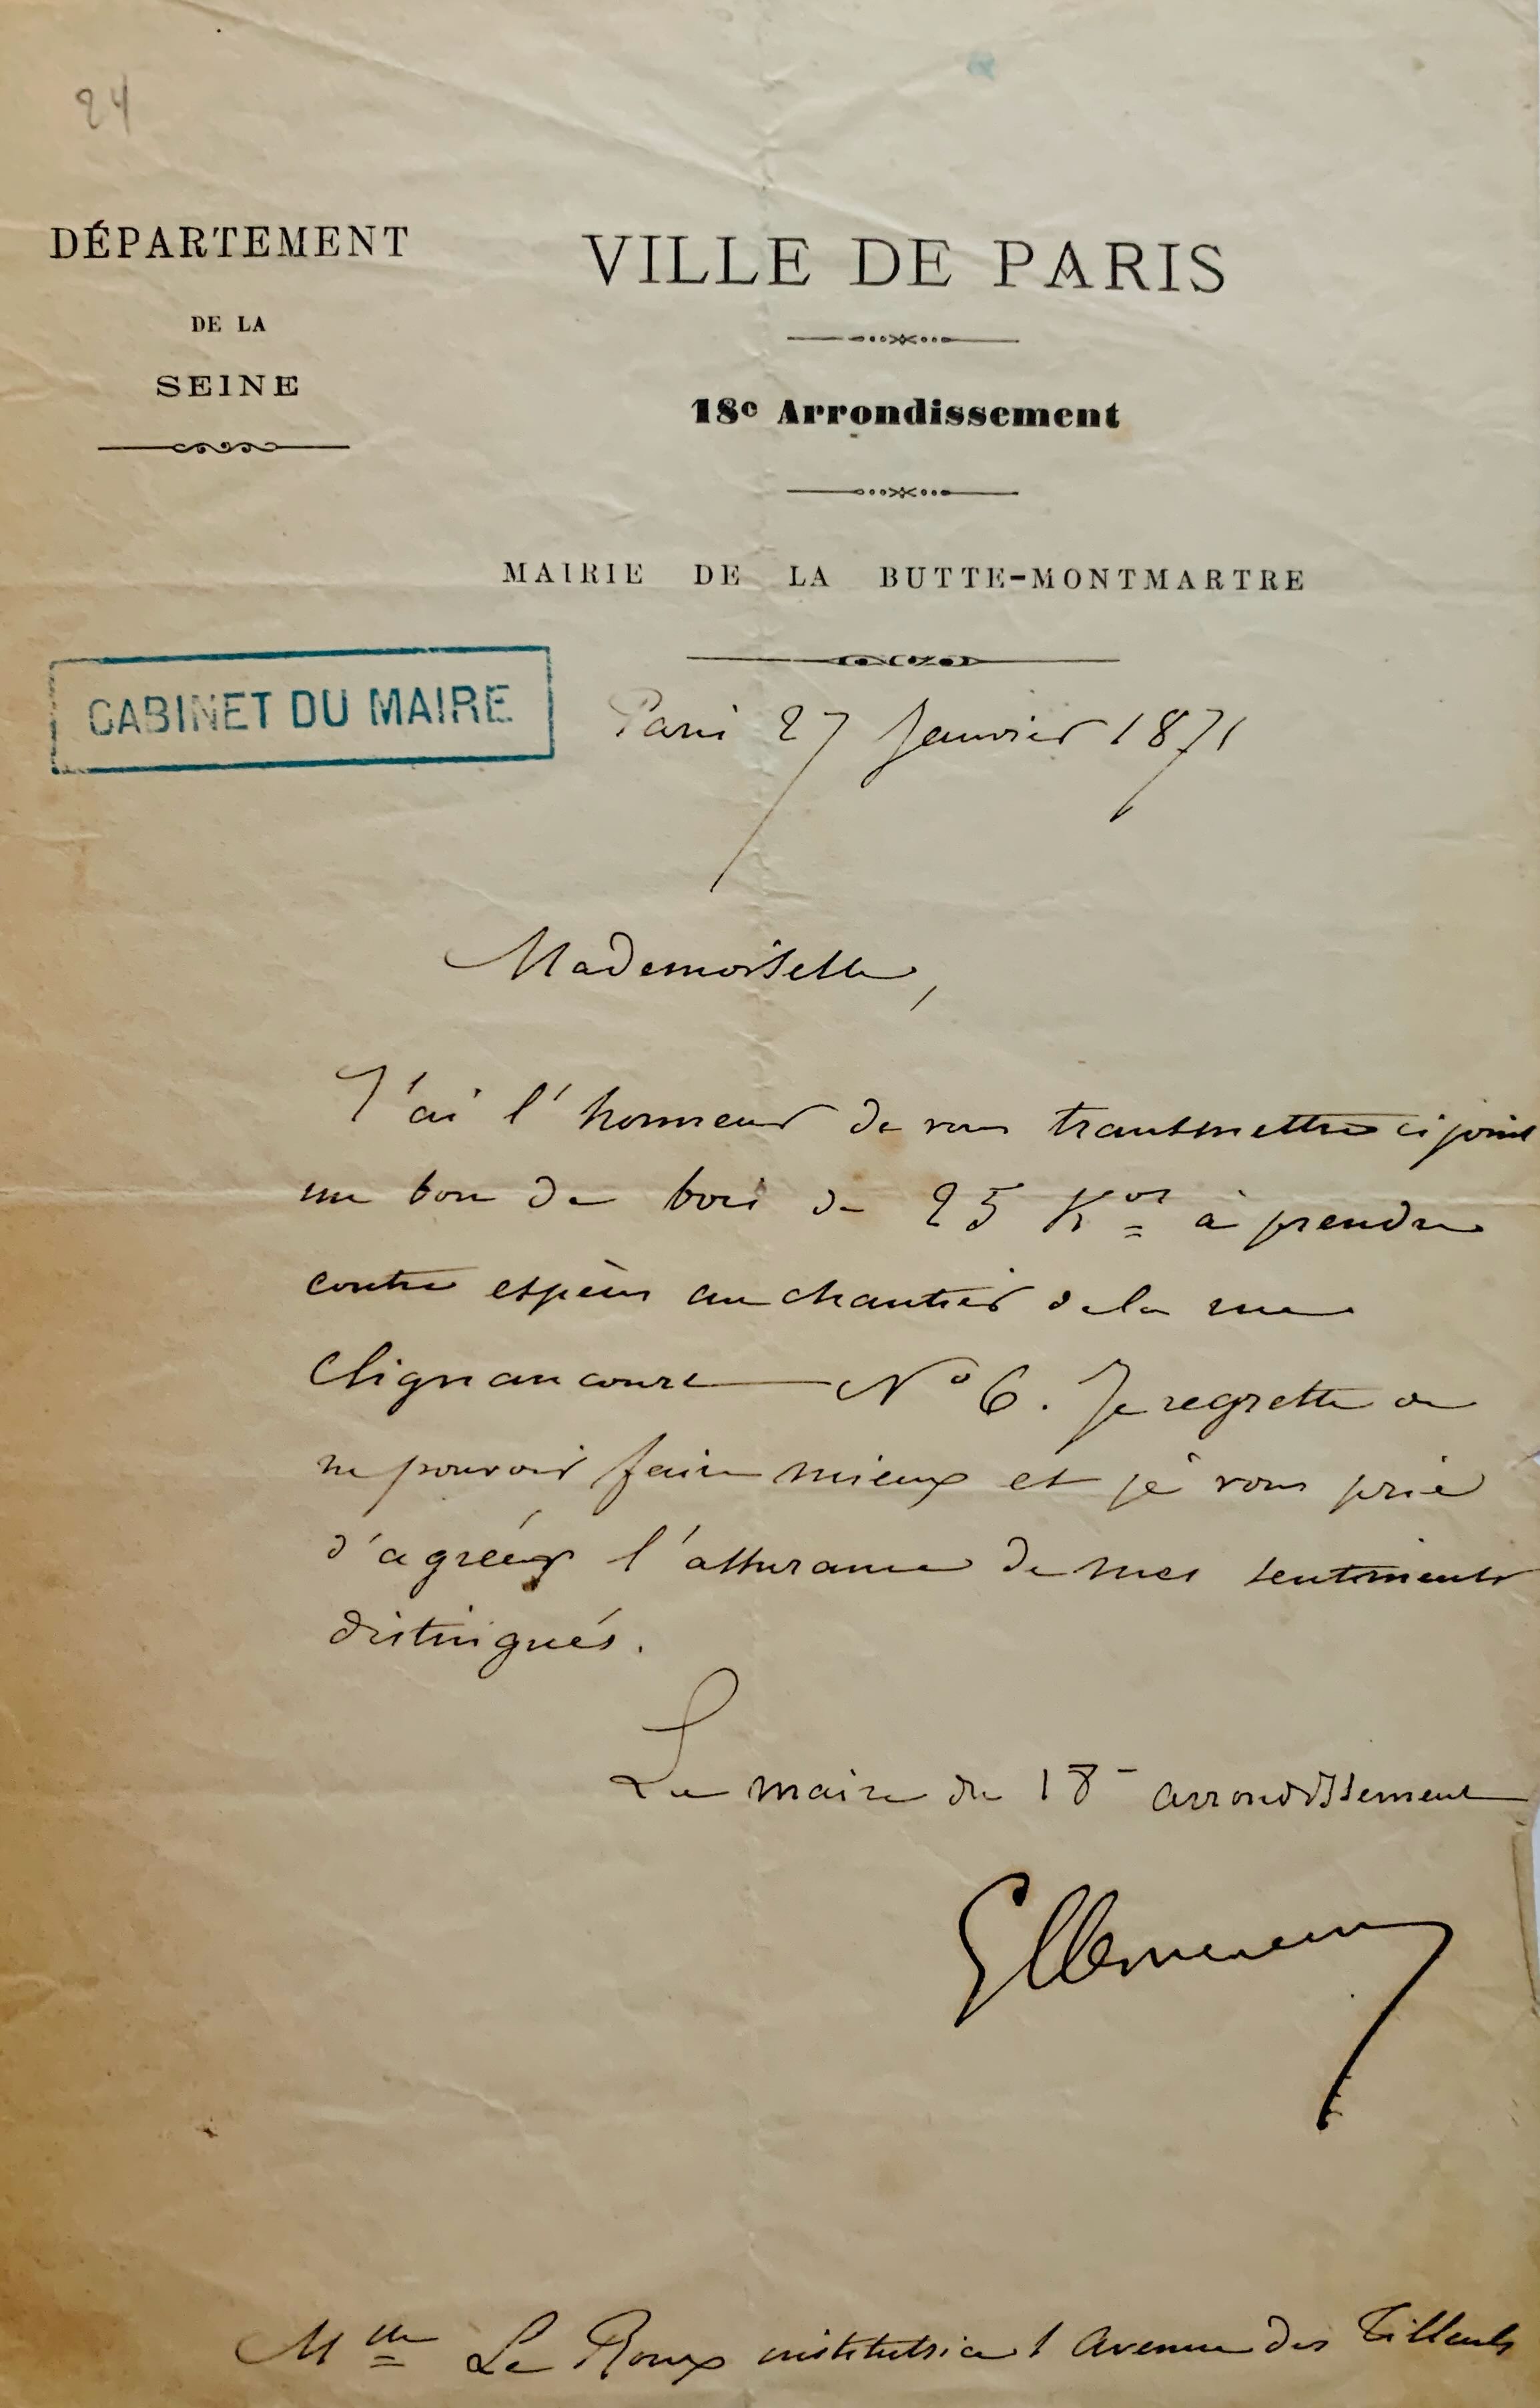 24
DÉPARTEMENT
DE LA
SEINE
VILLE DE PARIS
18e Arrondissement
MAIRIE DE LA BUTTE-MONTMARTRE
CABINET DU MAIRE
Paris 27 Janvier 1871
Mademoiselle,
J'ai l'honneur de vous transmettre ci joint
un bon de bois de 25 Kos à prendre
contre espèces au chantier de la rue
Clignancourt No 6. Je regrette de
ne pouvoir faire mieux et je vous prie
d'agréer l'assurance de mes sentiments
distingués.
Le maire du 18e arrondissement
GClemenceau
Mlle Le Roux institutrice 1 Avenue des Tilleuls